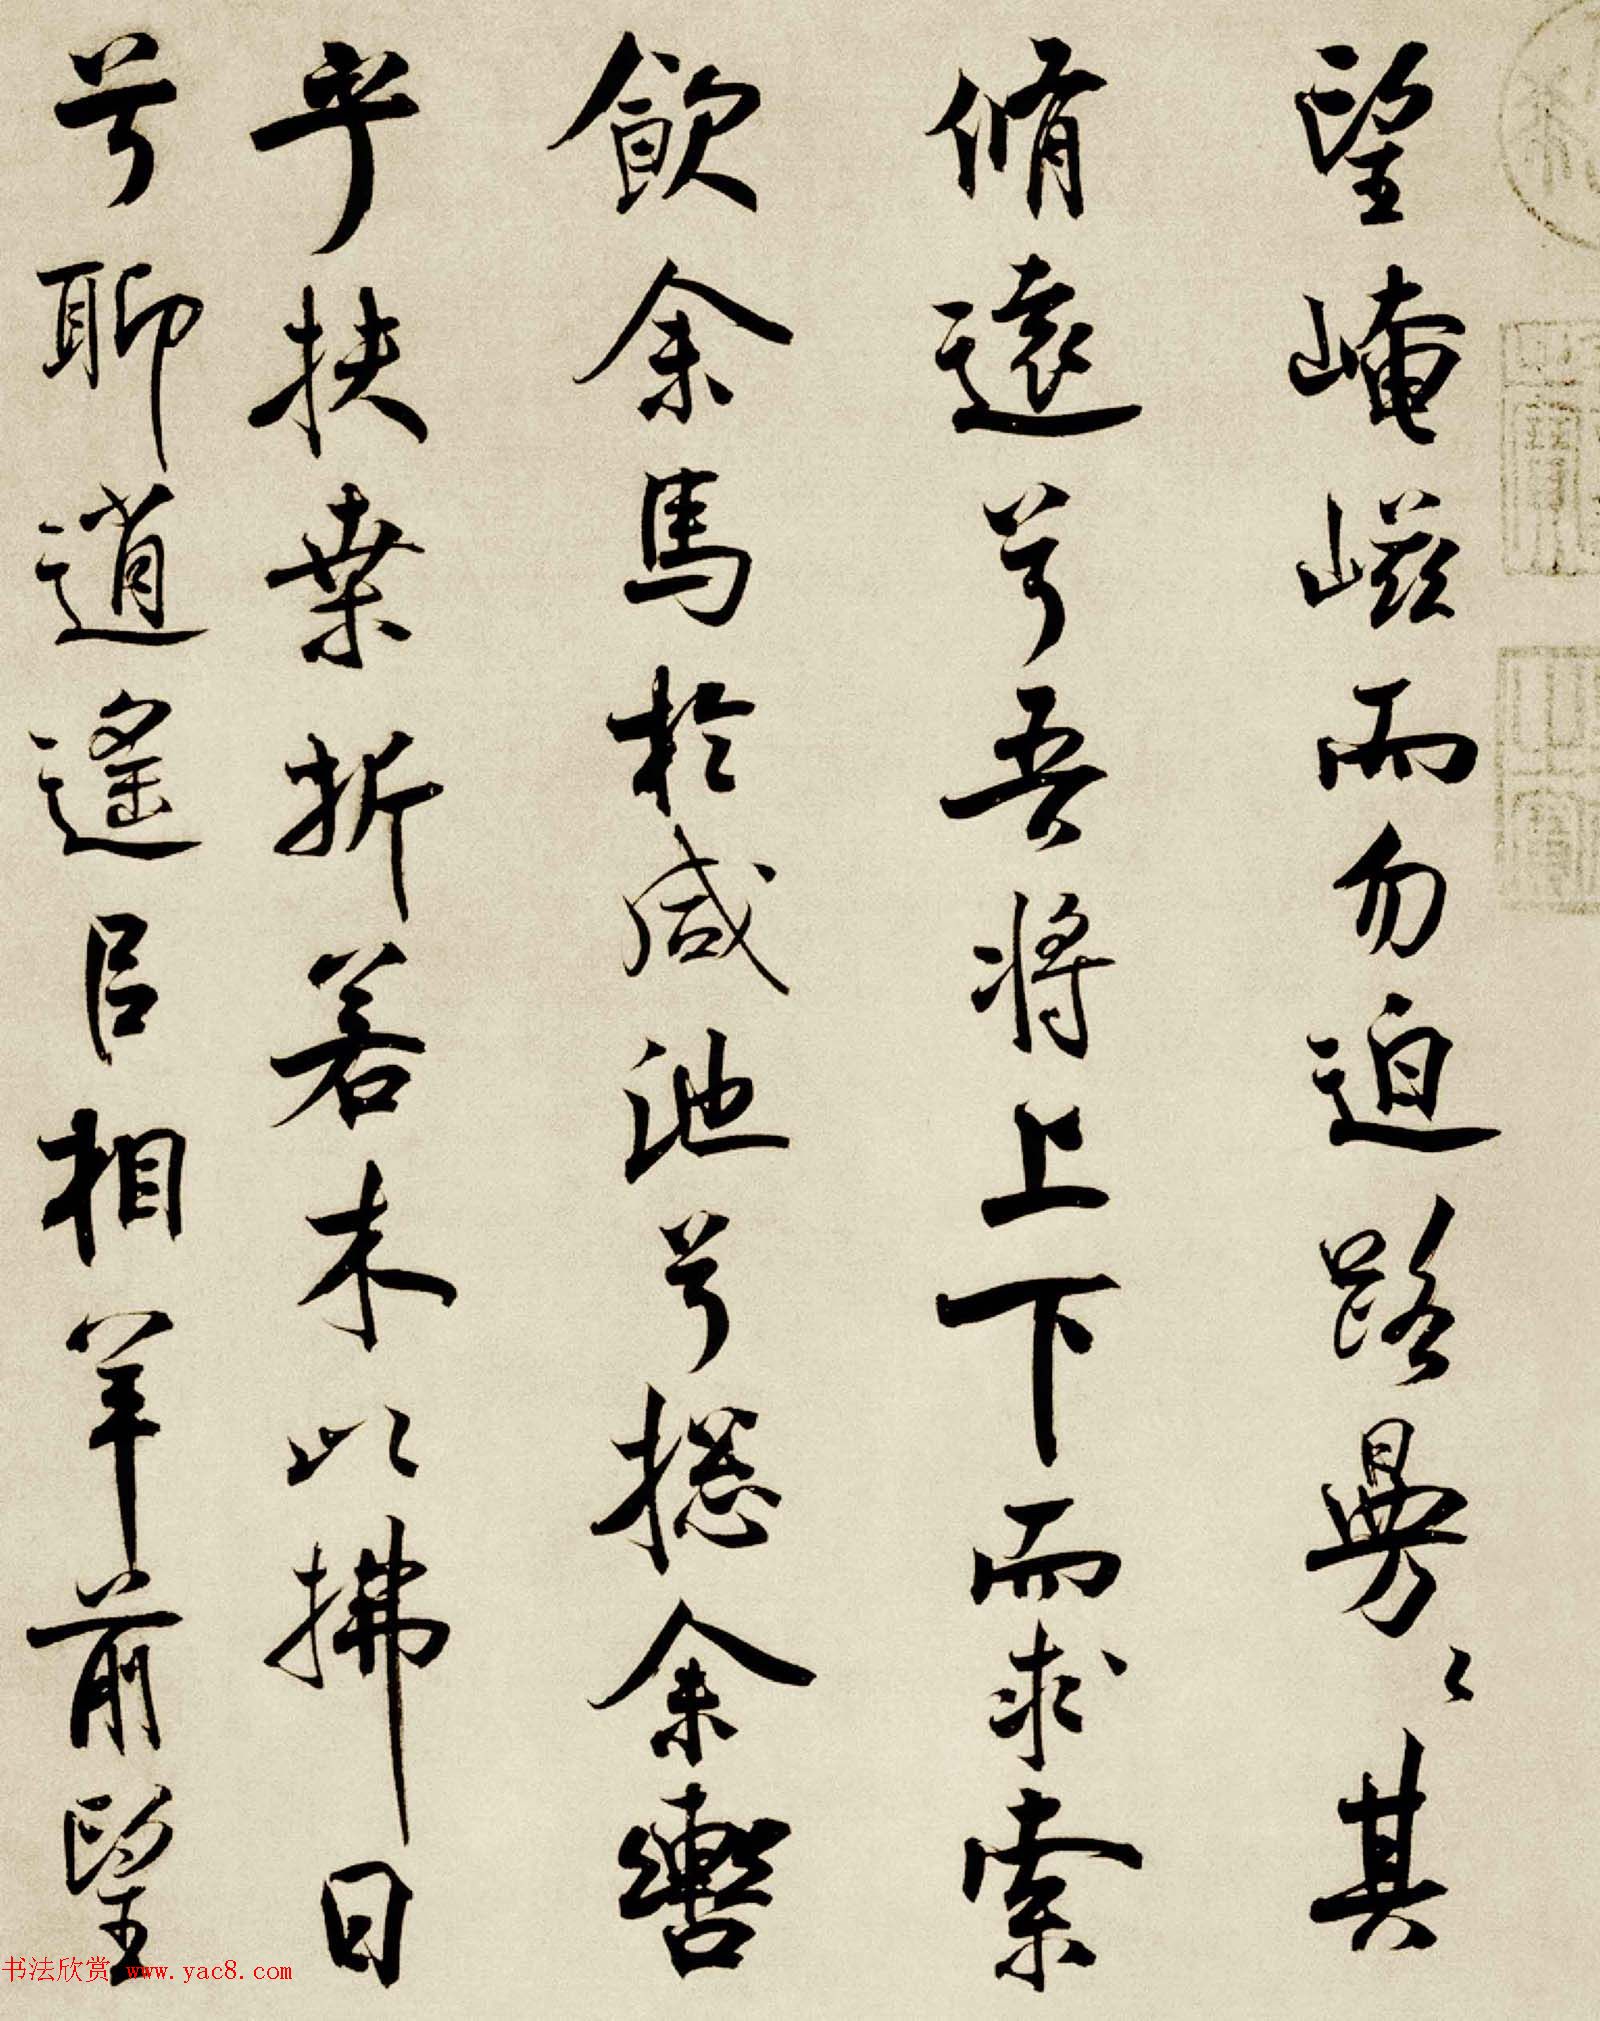 望崦嵫而勿迫路曼〻其
脩遠兮吾将上下而求索
飲余馬於咸池兮摠余轡
乎扶桒折若木以拂日
兮聊逍遙㠯相羊前望
书法欣赏 www.yac8.com